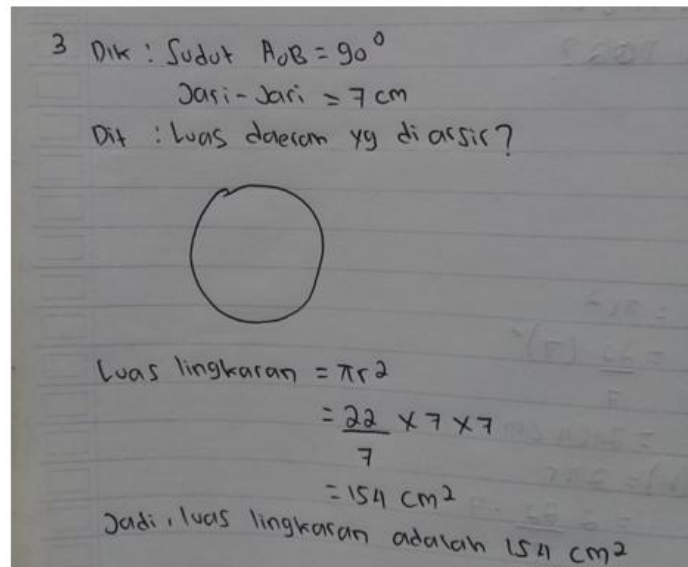 3 Dik : Sudut AOB = 90°
Jari-Jari = 7 cm
Dit : Luas daeram yg di arsir?
Luas lingkaran = πr2
= 22/7 × 7 × 7
= 154 cm2
Jadi, luas lingkaran adalah 154 cm2